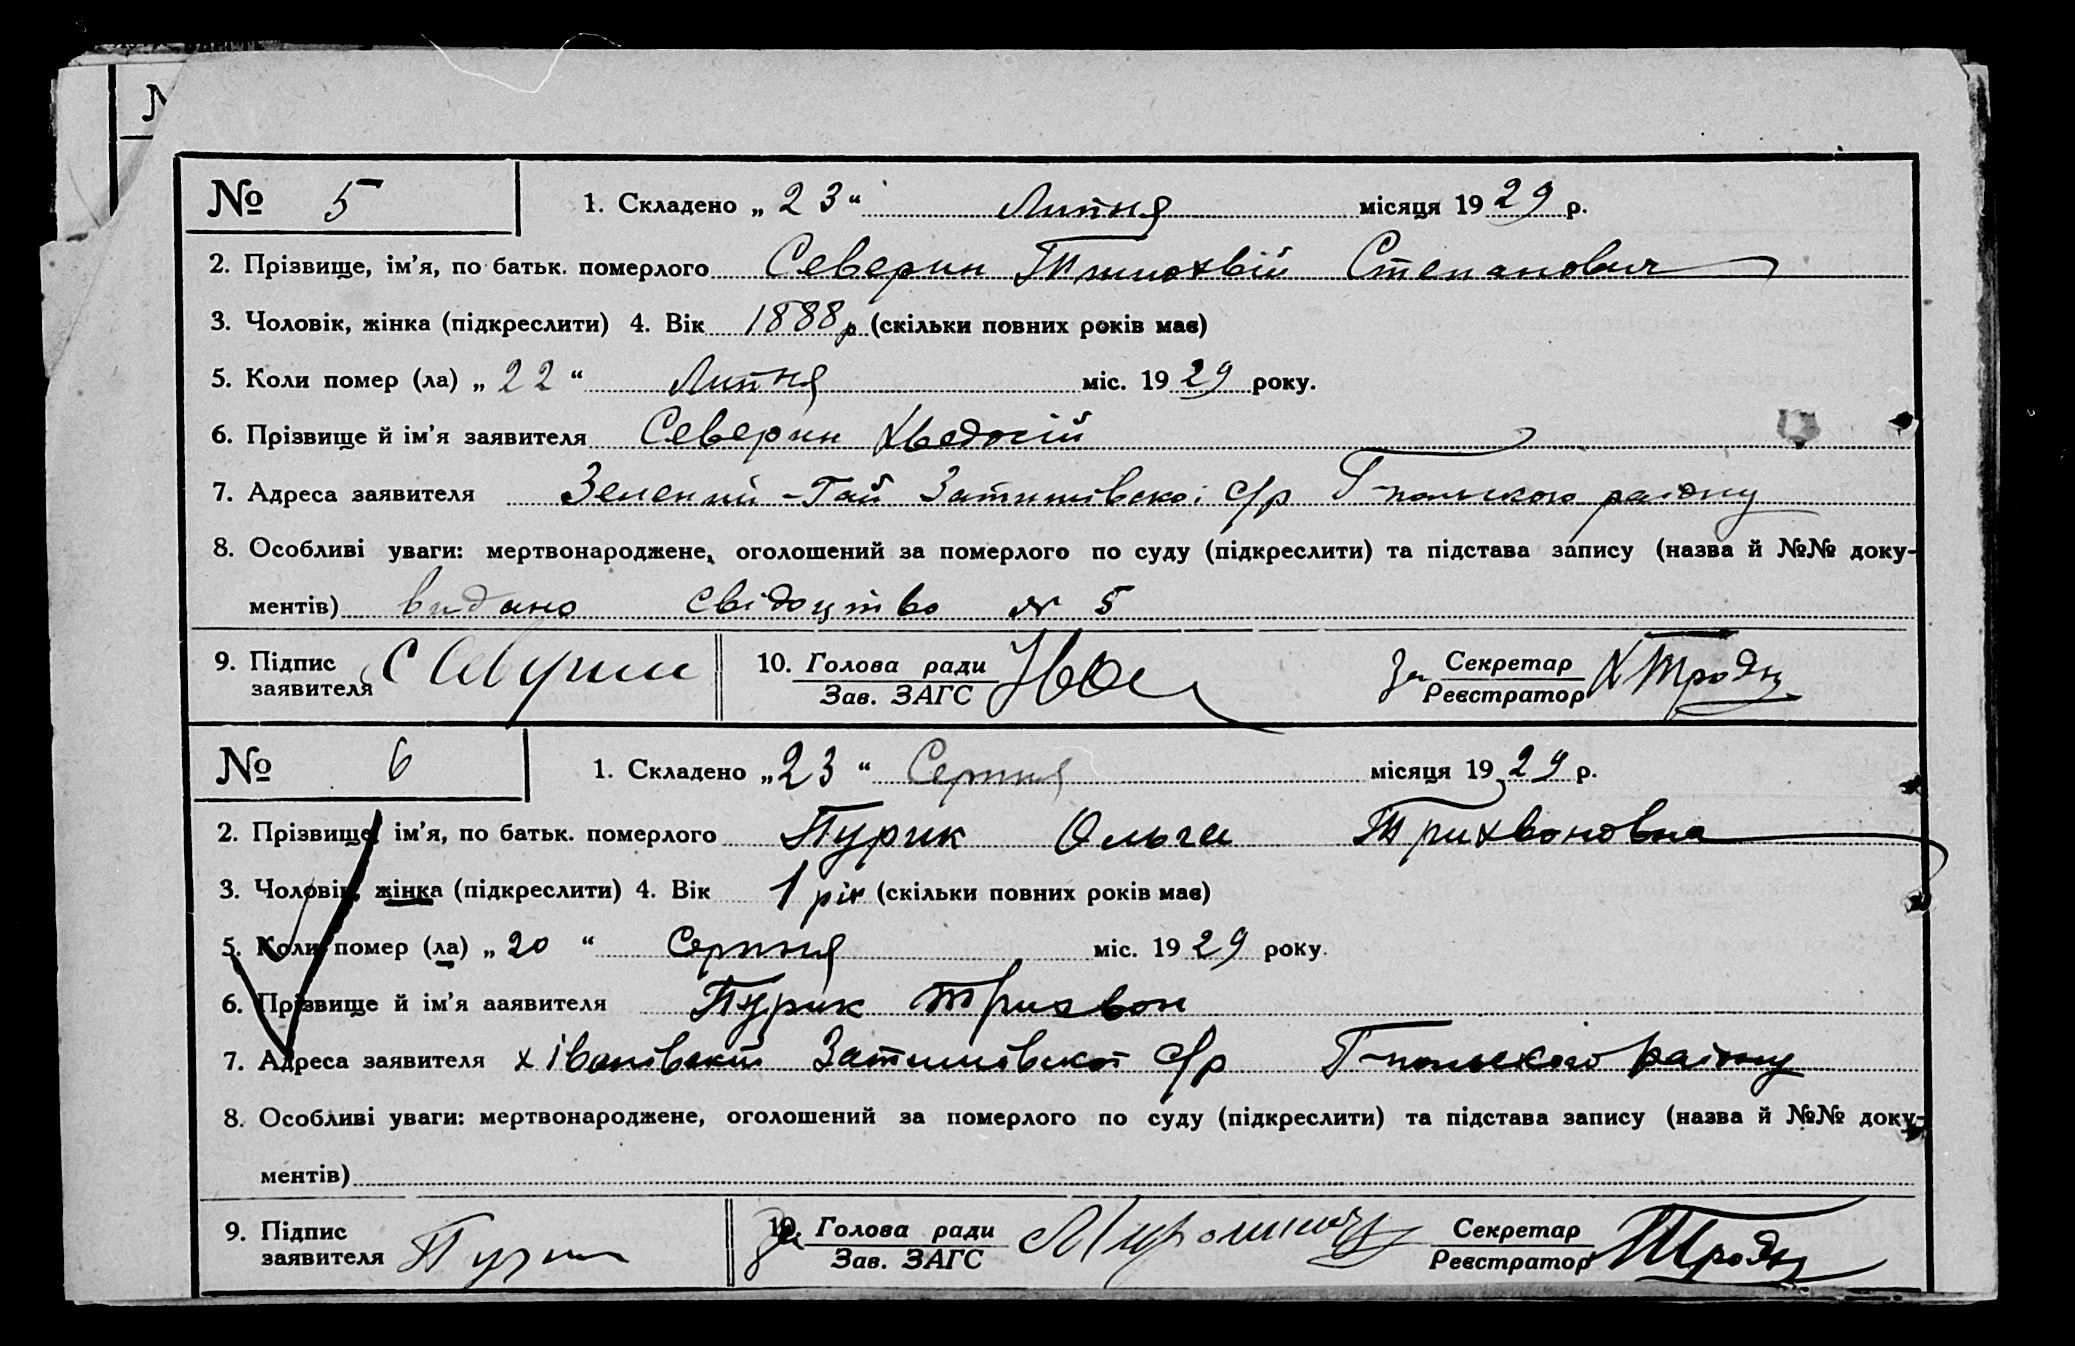 № 5 1. Складено „23“ Липня місяця 1929 р.
2. Прізвище, ім’я, по батьк. померлого Северин Тимохвій Степанович
3. Чоловік, жінка (підкреслити) 4. Вік 1888 р (скільки повних років має)
5. Коли помер (ла) „22“ Липня міс. 1929 року.
6. Прізвище й ім’я заявителя Северин Хведосій
7. Адреса заявителя Зелений-Гай Затишівської с/р Г-польского району
8. Особливі уваги: мертвонароджене, оголошений за померлого по суду (підкреслити) та підстава запису (назва й №№ доку-
ментів) видано свідоцтво № 5
9. Підпис заявителя Северин 10. Голова ради Зав. ЗАГС За Секретар Реєстратор
№ 6 1. Складено „23“ Серпня місяця 1929 р.
2. Прізвище, ім’я, по батьк. померлого Пурик Ольга Трихвоновна
3. Чоловік, жінка (підкреслити) 4. Вік 1 рік (скільки повних років має)
5. Коли помер (ла) „20“ Серпня міс. 1929 року.
6. Прізвище й ім’я ааявителя Пурик Трихвон
7. Адреса заявителя х Івановский Затишівської с/р Г-польского району
8. Особливі уваги: мертвонароджене, оголошений за померлого по суду (підкреслити) та підстава запису (назва й №№ доку-
ментів)
9. Підпис заявителя Пурик За 10. Голова ради Зав. ЗАГС Секретар Реєстратор